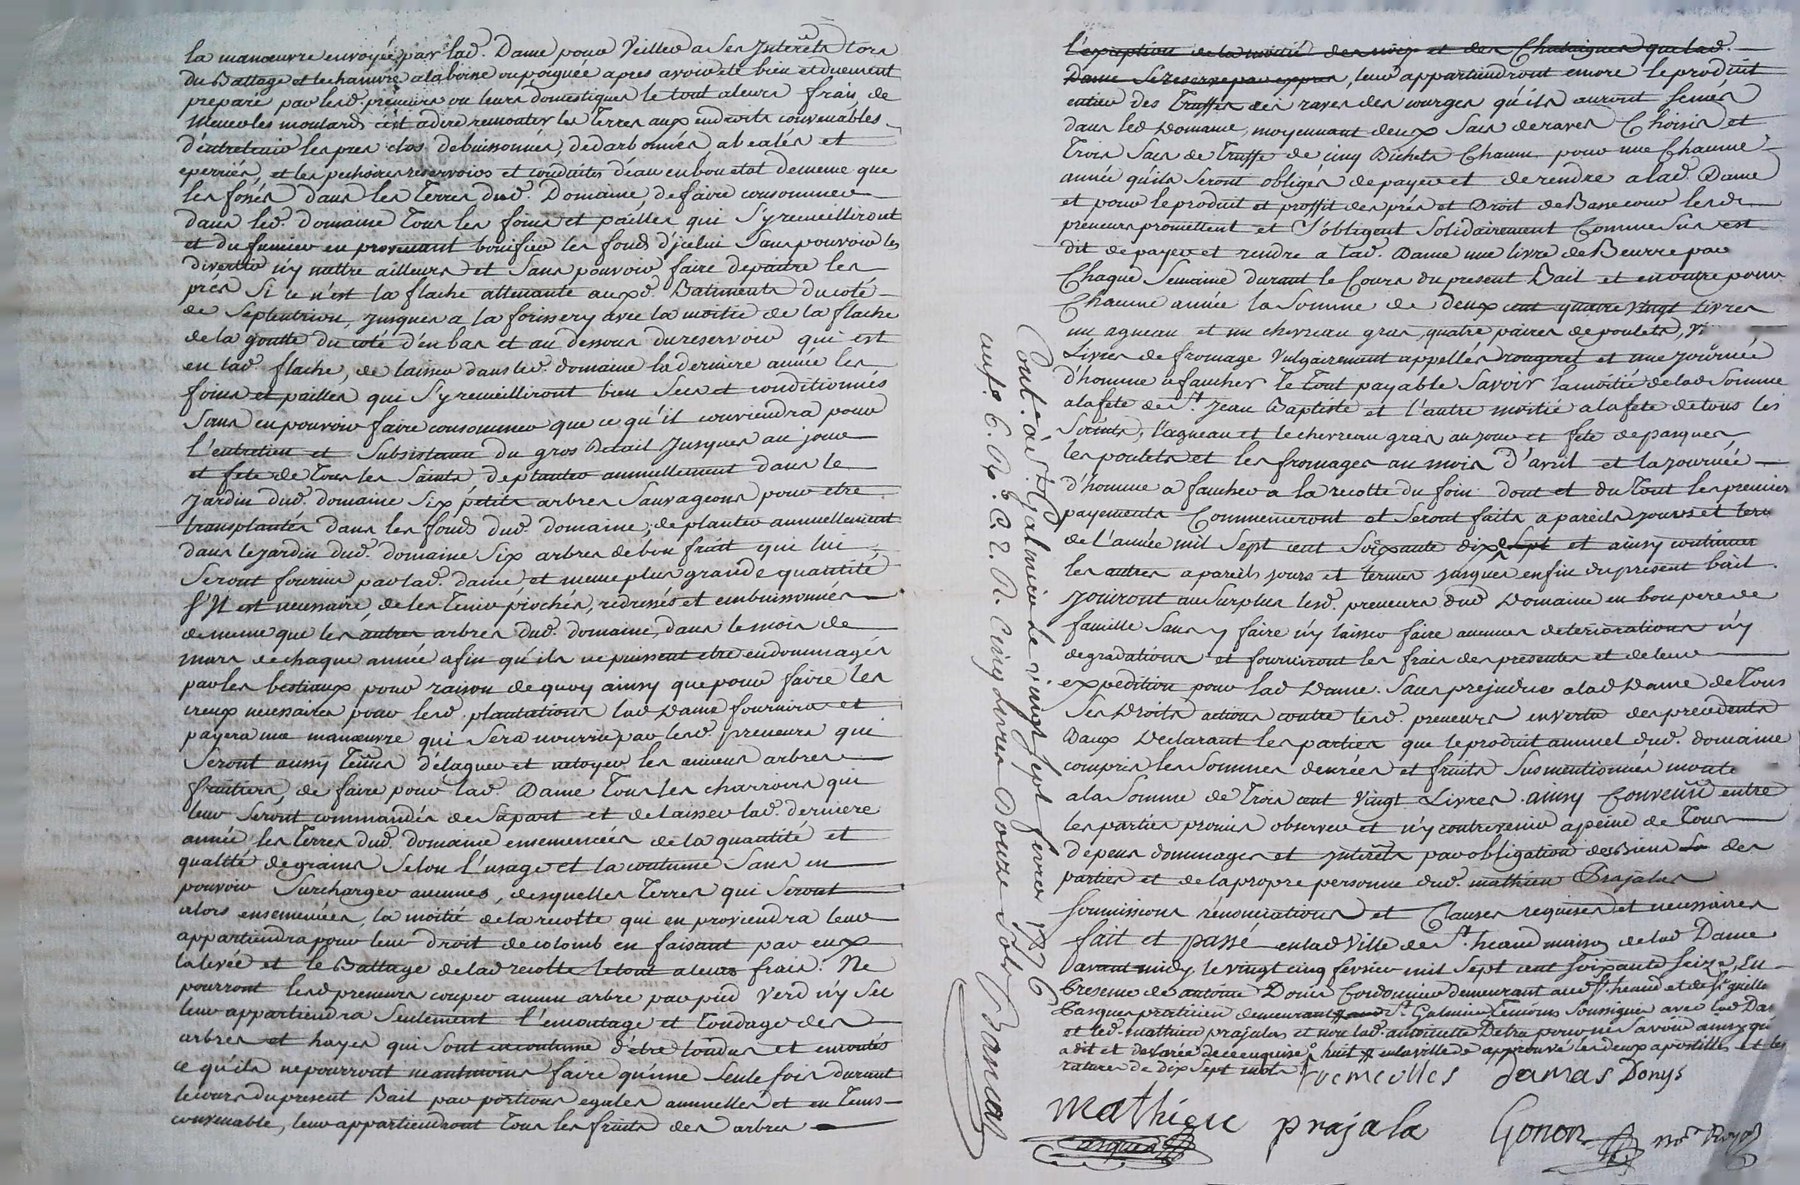 la manœuvre envoyée par lad.e Dame pour Veiller a Ses Interêts lors
du Battage et le chanvre a la boine ou poignée apres avoir eté bien et duement
preparé par lesd. preneurs ou leurs domestiques le tout a leurs frais, de
mener les moulards c'est a dire remonter les Terres aux endroits convenables
d'entretenir les prés clos debuissonnés, dedarbonnés, abealés et
eperriés, et les pechoires reservoirs et conduites d'eau en bon etat de meme que
les fossés dans les Terres dud. Domaine, de faire consommer
dans led. domaine Tous les foins et pailles qui S'y recueilliront
et du fumier en provenant bonifier les fonds d'jcelui Sans pouvoir les
divertir n'y mettre ailleurs et Sans pouvoir faire depaitre les
prés Si ce n'est la flache attenante auxd. Batiments du coté
de Septentrion, jusques a la foissery avec la moitié de la flache
de la goutte du coté d'en bas et au dessous du reservoir qui est
en lad. flache, de laisser dans led. domaine la derniere année les
foins et pailles qui S'y recueilliront bien Secs et conditionnés
Sans en pouvoir faire consommer que ce qu'il conviendra pour
l'entretien et Subsistance du gros Betail jusques au jour
et fete de Tous les Saints de planter annuellement dans le
jardin dud. domaine Six petits arbres Sauvageons pour etre
transplantés dans les fonds dud. domaine, de planter annuellement
dans le jardin dud. domaine Six arbres de bon fruit qui lui
Seront fournis par lad. dame et meme plus grande quantité
S'Il est necessaire, de les Tenir piochés, redressés et embuissonnés
de meme que les autres arbres dud. domaine, dans le mois de
mars de chaque année afin qu'ils ne puissent etre endommagés
par les bestiaux pour raison de quoy ainsy que pour faire les
creux necessaires pour lesd. plantations lad. Dame fournira et
payera une manœuvre qui Sera nourrie par lesd. preneurs qui
Seront aussy Tenus d'elaguer et netoyer les anciens arbres
fruitiers, de faire pour lad. Dame Tous les charrois qui
leur Seront commandés de Sa part et de laisser lad. derniere
année les Terres dud. domaine ensemencées de la quantité et
qualité de grains Selon l'usage et la coutume Sans en
pouvoir Surcharger aucunes, desquelles Terres qui Seront
alors ensemencées la moitié de la recolte qui en proviendra leur
appartiendra pour leur droit de colomb en faisant par eux
la levée et le Battage de lad. recolte le tout a leurs frais. Ne
pourront lesd. preneurs couper aucun arbre par pied Verd n'y Sec
leur appartiendra Seulement l'emontage et Tondage des
arbres et hayes qui Sont en coutume d'etre tondus et emontés
ce qu'ils ne pourront neantmoins faire qu'une Seule fois durant
le cours du present Bail par portions egales annuelles et en Tems
convenable, leur appartiendront Tous les fruits des arbres
l'exception de la moitié des noix et des Chataignes que lad.
Dame Se reserve par exprès, leur appartiendront encore le produit
entier des Truffes des raves des courges qu'ils auront Semés
dans led. Domaine, moyennant deux Sacs de raves Choisis et
Trois Sacs de Truffe de cinq Bichets Chacun pour une Chacune
année qu'ils Seront obligés de payer et de rendre a lad. Dame
et pour le produit et proffit des prés et Droit de Basse cour lesd.
preneurs promettent et S'obligent Solidairement Comme Sus est
dit de payer et rendre a lad. Dame une livre de Beurre par
Chaque Semaine durant le Cours du present Bail et en outre pour
Chacune année la Somme de deux cent quatre Vingt Livres
un agneau et un chevreau gras, quatre paires de poulets, Vi
Livres de fromage Vulgairement appellés rougeret et une journée
d'homme a faucher le Tout payable Savoir la moitié de lad. Somme
a la fete de St. Jean Baptiste et l'autre moitié a la fete de tous les
Saints, l'agneau et le chevreau gras au jour et fete de pasques
les poulets et les fromages au mois d'avril et la journée
d'homme a faucher a la recolte du foin dont et du Tout les premiers
payements Commenceront et Seront faits a pareils jours et termes
de l'année mil Sept cent Soixante dix Sept et ainsy continuer
les autres a pareils jours et termes jusques en fin du present bail.
Jouiront au Surplus lesd. preneurs dud. Domaine en bon pere de
famille Sans y faire n'y laisser faire aucunes deteriorations n'y
degradations et fourniront les frais des presentes et de leur
expedition pour lad. Dame. Sans prejudice a lad. Dame de Tous
Ses Droits actions contre lesd. preneurs en vertu des precedents
Baux Declarant les parties que le produit annuel dud. domaine
compris les Sommes denrées et fruits Susmentionnés monte
a la Somme de Trois cent Vingt Livres. ainsy Convenu entre
les parties promis observer et n'y contrevenir a peine de Tous
depens dommages et Interêts par obligation de Biens des
parties et de la propre personne dud. mathieu Prajalas
soumissions rénonciations et Clauses requises et necessaires
fait et passé en lad. Ville de St. heand maison de lad. Dame
avant midy le vingt cinq fevrier mil Sept cent Soixante Seize, En
presence de antoine Cordonnier demeurant aud. St. heand et de Sr.
Pasques praticien demeurant St. Galmier Temoins Soussignés avec lad. Dame
et led. mathieu prajalas et non lad. antoinette pour ne Savoir ainsy qu'
a dit et declaré de ce enquise approuvé les deux apostilles et les
ratures de Dix Sept mots
damas Donys
mathieu prajala Gonon nore. Royal
pasques
Cont. à St. Galmier le vingt sept fevrier 1776
Cinq Livres Douze Sols Bancal